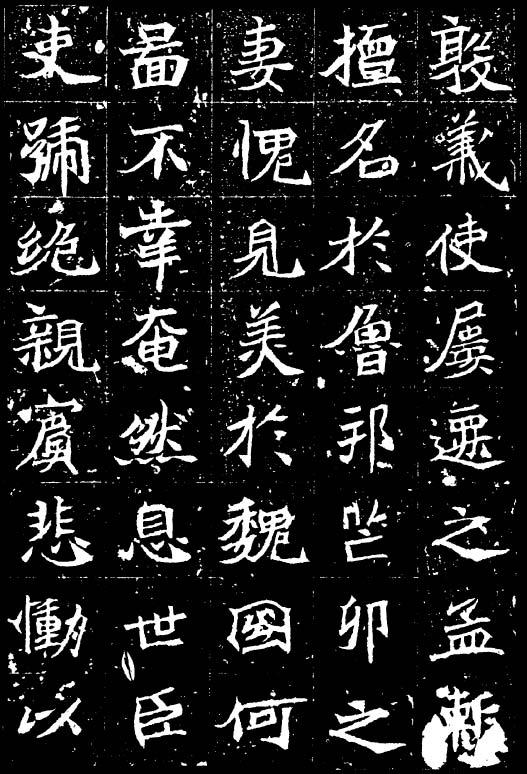 敦義使屢遷之孟慙
擅名於魯邦芒卯之
妻愧見美於魏國何
啚不幸奄然息世臣
吏號絶親賓悲慟以